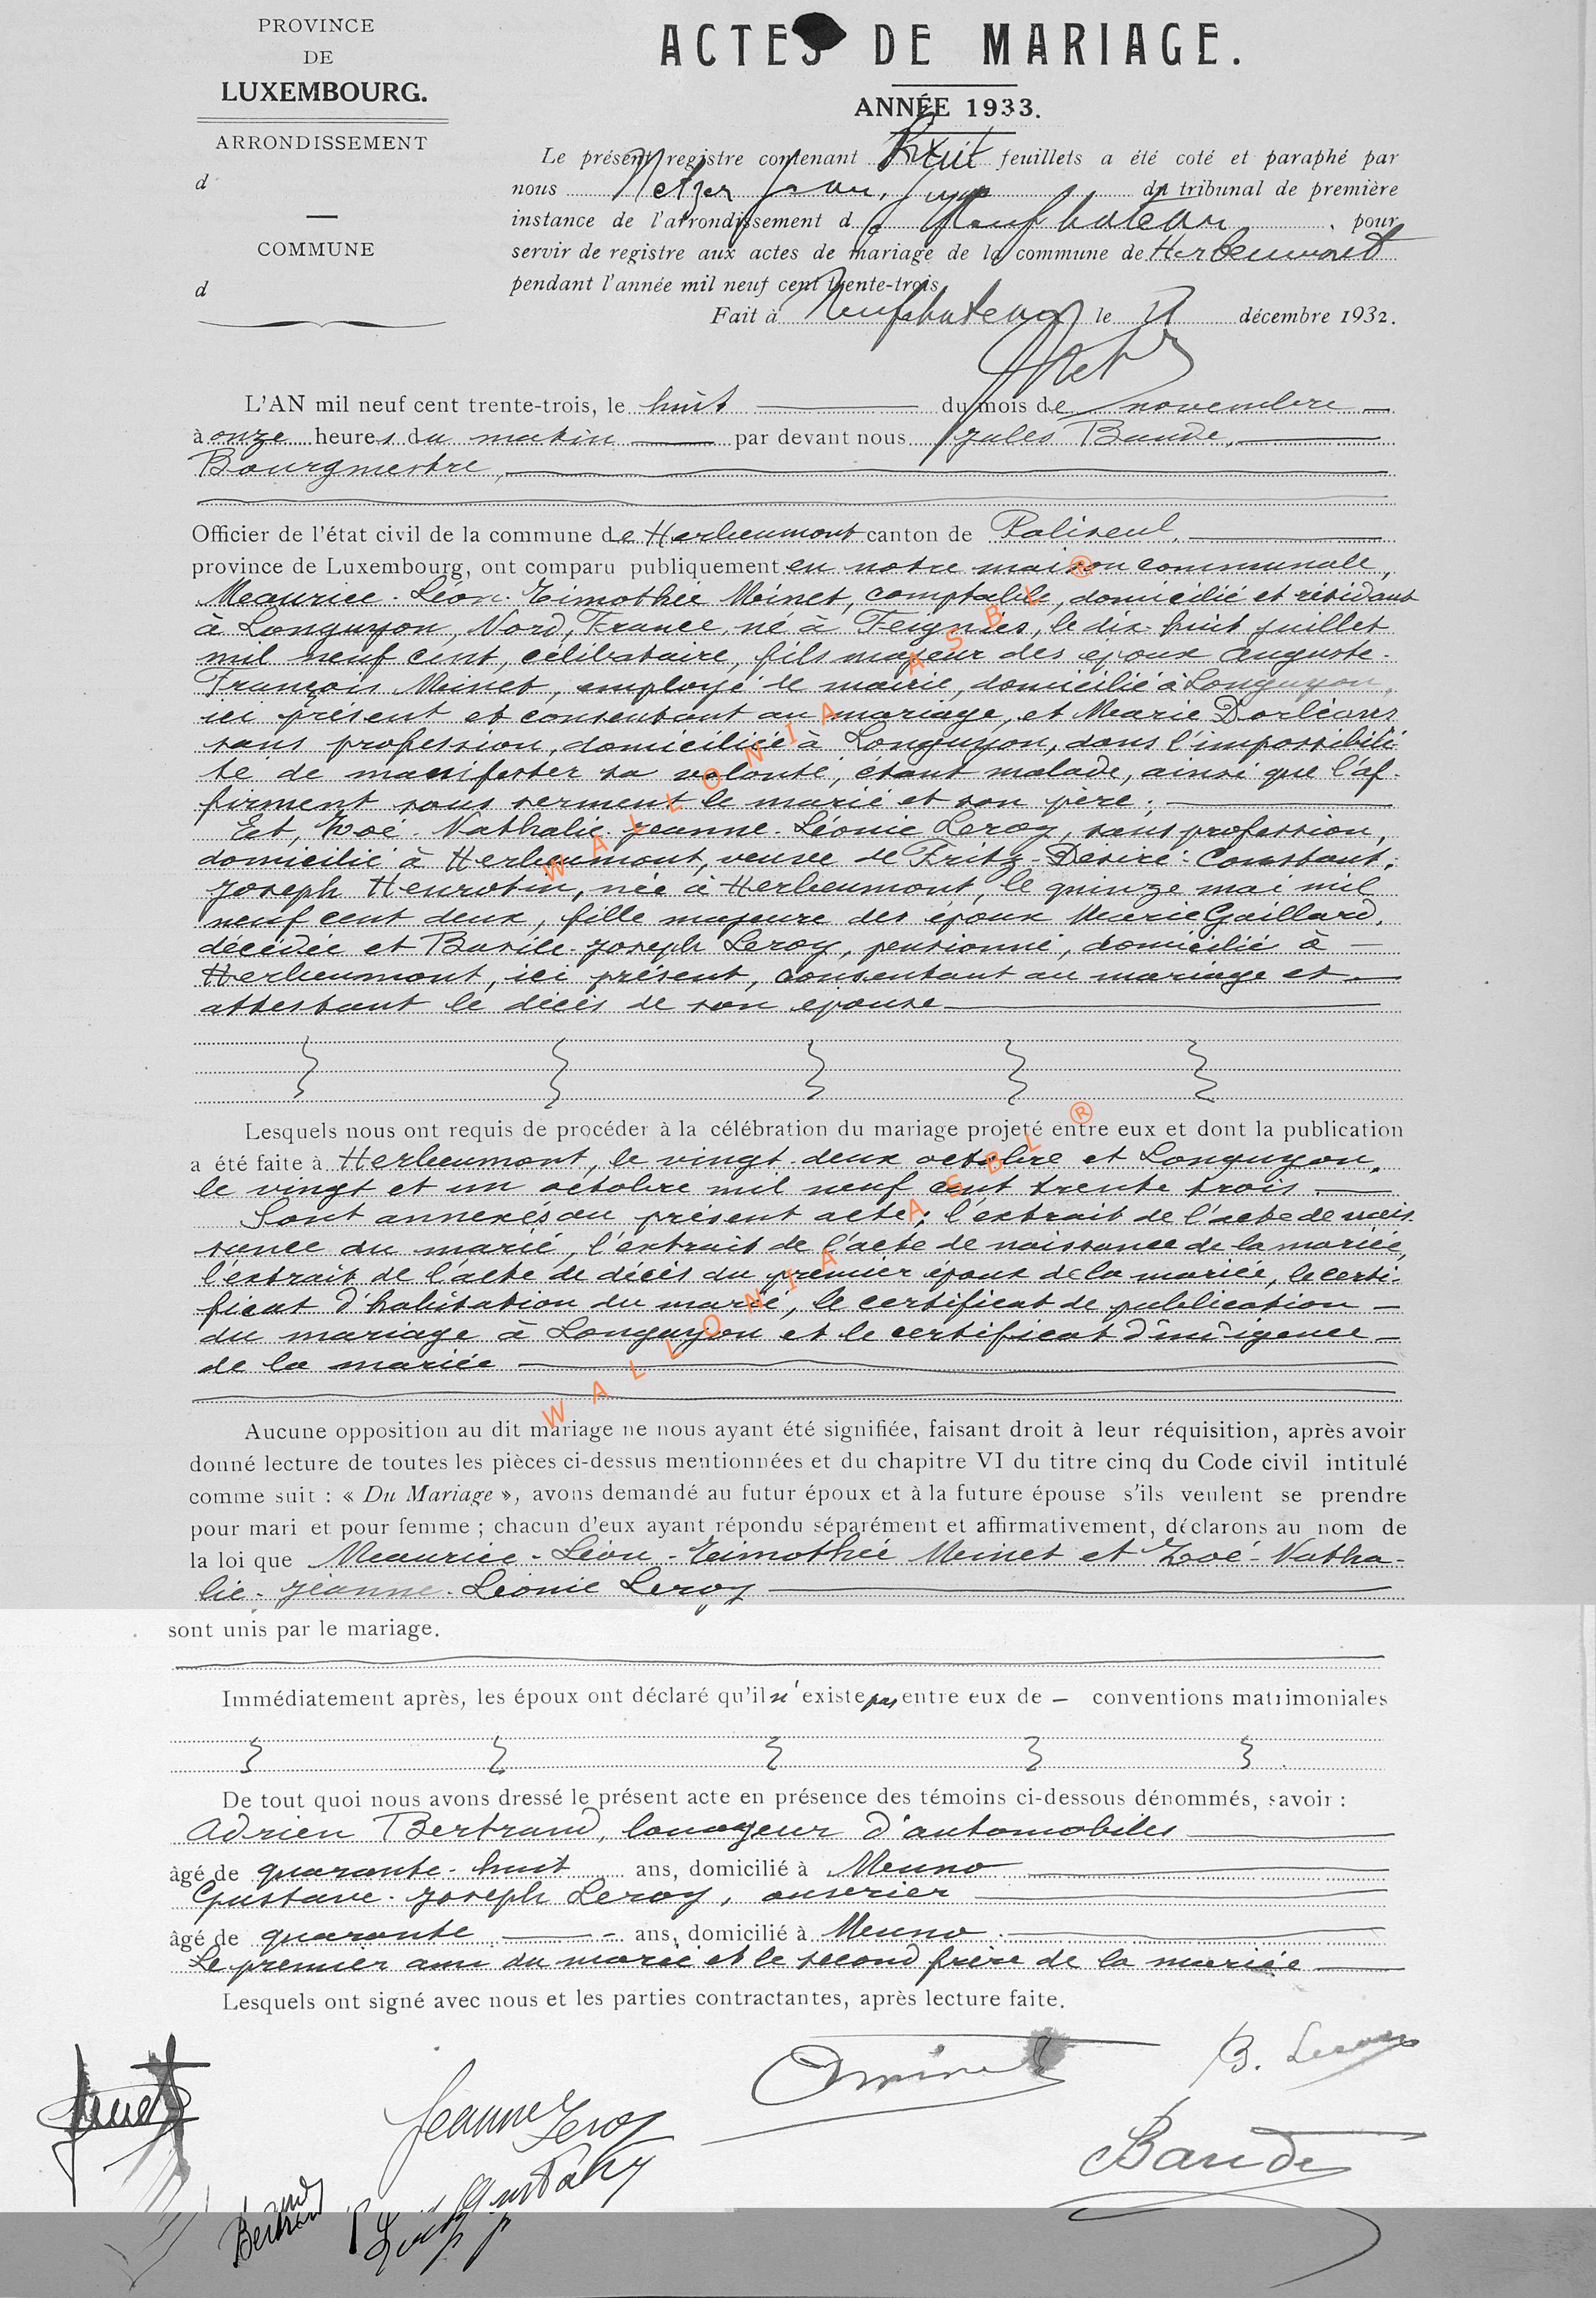 PROVINCE
DE
LUXEMBOURG.
ARRONDISSEMENT
d
COMMUNE
d
ACTES DE MARIAGE.
ANNÉE 1933.
Le présent registre contenant huit feuillets a été coté et paraphé par
nous Netzer Jean, juge du tribunal de première
instance de l'arrondissement d e Neufchateau , pour
servir de registre aux actes de mariage de la commune de Herbeumont
pendant l'année mil neuf cent trente-trois
Fait à Neufchateau le décembre 1932.
L'AN mil neuf cent trente-trois, le huit du mois de novembre
à onze heures du matin par devant nous Jules Baude,
Bourgmestre,
Officier de l'état civil de la commune de Herbeumont canton de Paliseul,
province de Luxembourg, ont comparu publiquement en notre maison communale,
Maurice-Léon-Timothée Minet, comptable, domicilié et résidant
à Longuyon, Nord, France, né à Feignies, le dix-huit juillet
mil neuf cent, célibataire, fils majeur des époux Auguste-
François Minet, employé de mairie, domicilié à Longuyon,
ici présent et consentant au mariage, et Marie Dorléans
sans profession, domiciliée à Longuyon, dans l'impossibili
té de manifester sa volonté, étant malade, ainsi que l'af-
firment sous serment le marié et son père;
Et, Zoé-Nathalie-Jeanne-Léonie Leroy, sans profession,
domicilié à Herbeumont, veuve de Fritz-Désiré-Constant-
Joseph Henrotin, née à Herbeumont, le quinze mai mil
neuf cent deux, fille majeure des époux Marie Gaillard,
décédée et Basile-Joseph Leroy, pensionné, domicilié à
Herbeumont, ici présent, consentant au mariage et
attestant le décès de son épouse
Lesquels nous ont requis de procéder à la célébration du mariage projeté entre eux et dont la publication
a été faite à Herbeumont, le vingt-deux octobre et Longuyon,
le vingt et un octobre mil neuf cent trente trois.
Sont annexés au présent acte: l'extrait de l'acte de nais-
sance du marié, l'extrait de l'acte de naissance de la mariée,
l'extrait de l'acte de décès du premier époux de la mariée, le certi-
ficat d'habitation du marié, le certificat de publication
du mariage à Longuyon et le certificat d'indigence
de la mariée
Aucune opposition au dit mariage ne nous ayant été signifiée, faisant droit à leur réquisition, après avoir
donné lecture de toutes les pièces ci-dessus mentionnées et du chapitre VI du titre cinq du Code civil intitulé
comme suit : « Du Mariage », avons demandé au futur époux et à la future épouse s'ils veulent se prendre
pour mari et pour femme ; chacun d'eux ayant répondu séparément et affirmativement, déclarons au nom de
la loi que Maurice-Léon-Timothée Minet et Zoé-Natha-
lie-Jeanne-Léonie Leroy
sont unis par le mariage.
Immédiatement après, les époux ont déclaré qu'il n'existe pas entre eux de conventions matrimoniales
De tout quoi nous avons dressé le présent acte en présence des témoins ci-dessous dénommés, savoir :
Adrien Bertrand, louageur d'automobiles
âgé de quarante-huit ans, domicilié à Muno
Gustave-Joseph Leroy, ouvrier
âgé de quarante ans, domicilié à Muno
Le premier ami du marié et le second frère de la mariée
Lesquels ont signé avec nous et les parties contractantes, après lecture faite.
Minet
Jeanne Leroy
Aminet
B. Leroy
Baude
Bertrand
WALLONIA ASBL ®
WALLONIA ASBL ®